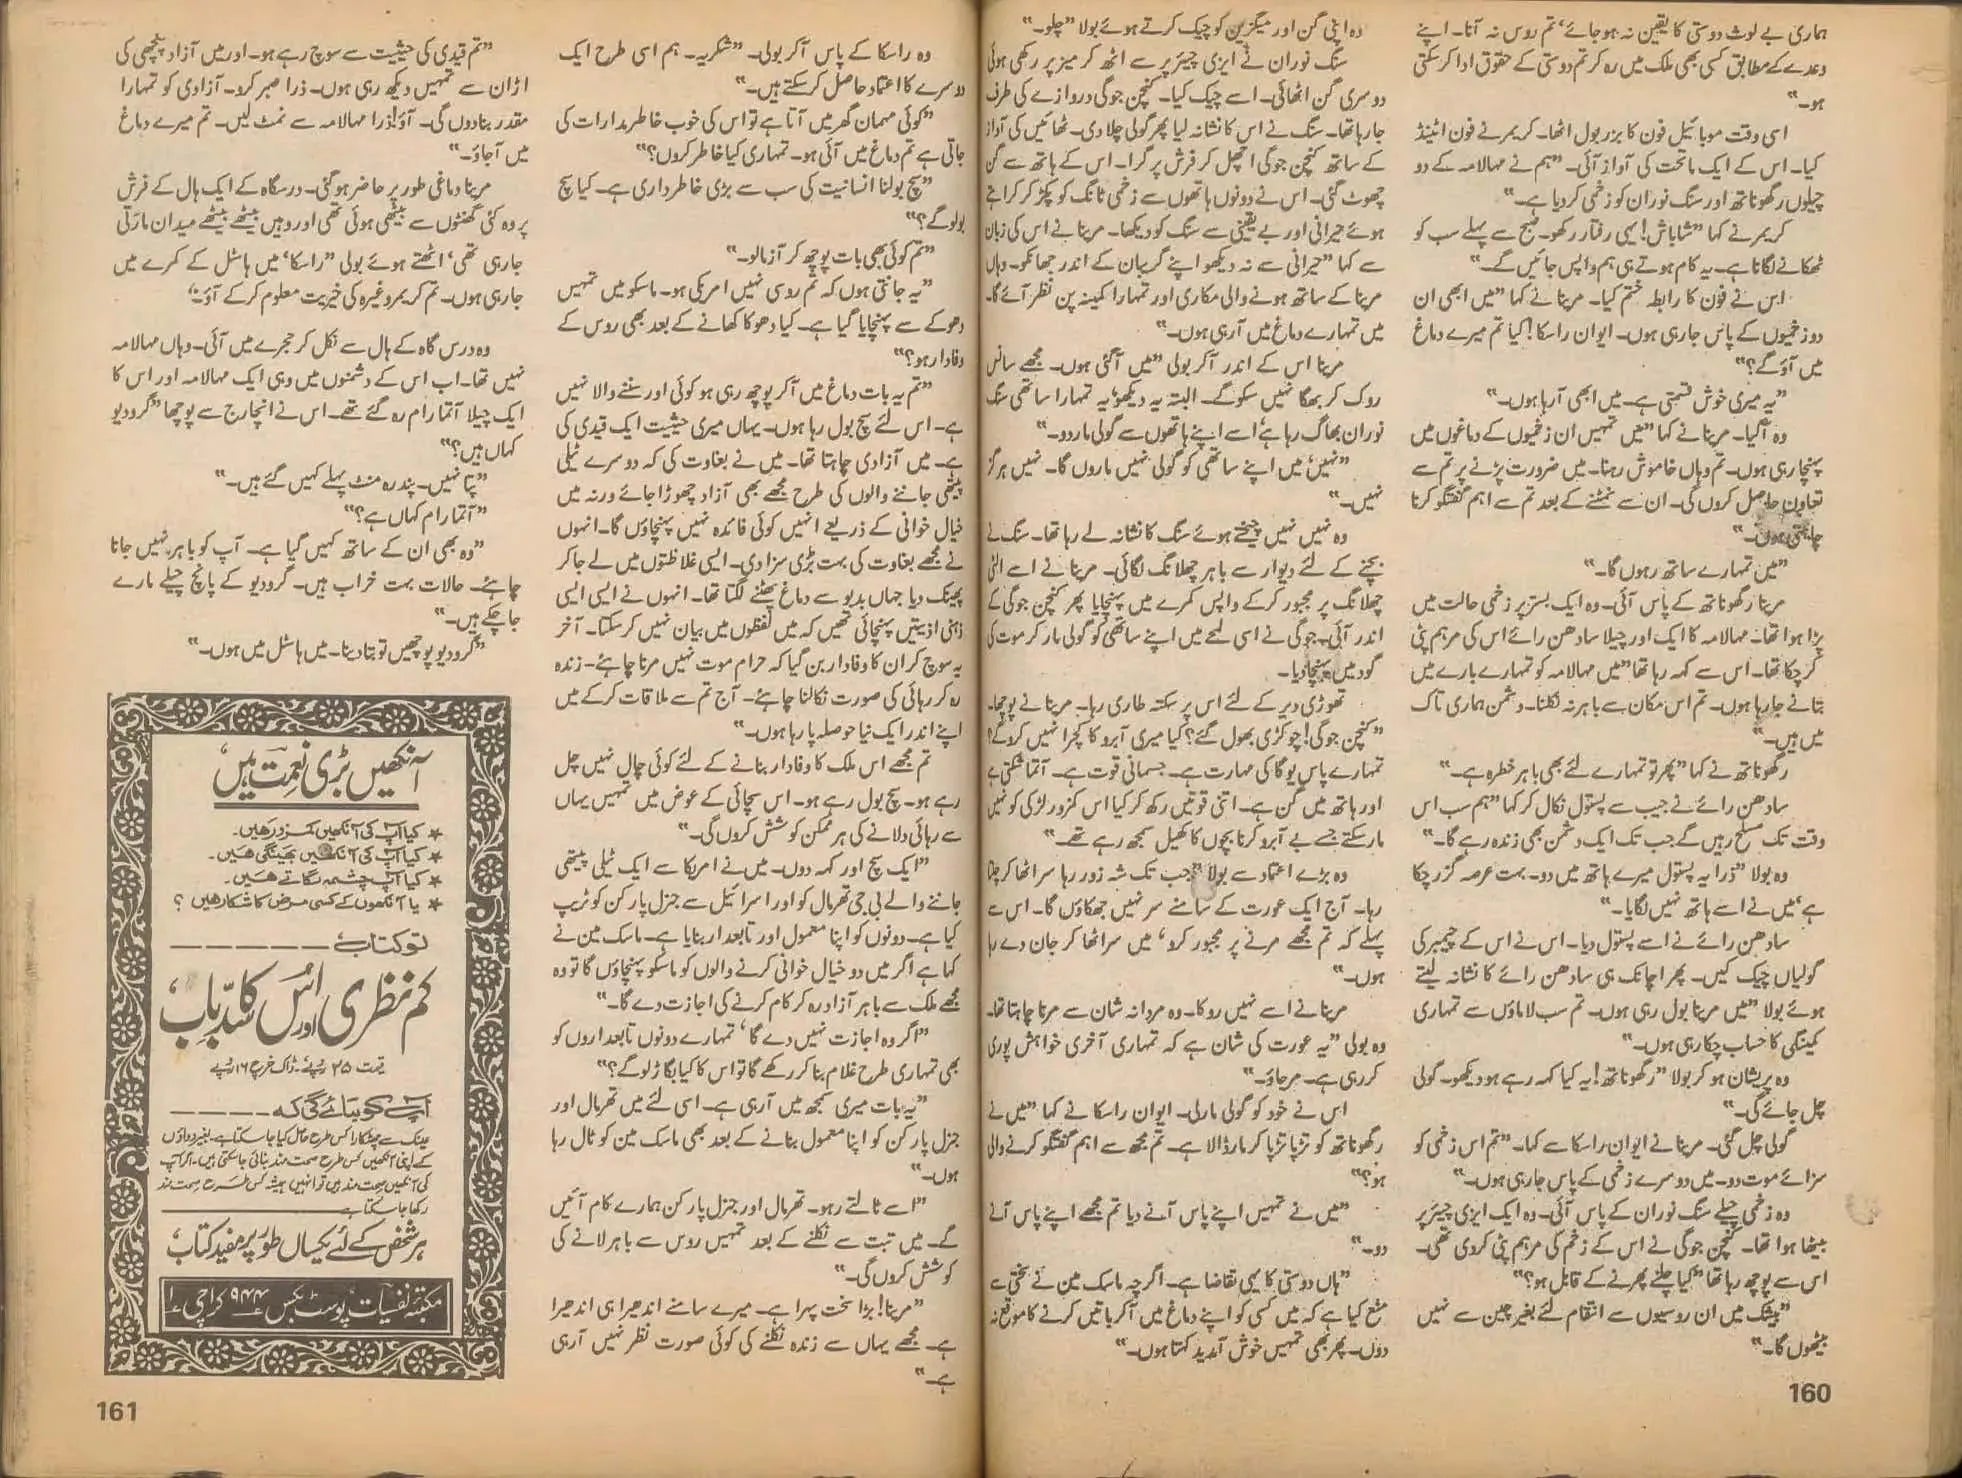 ہماری بے لوث دوستی کا یقین نہ ہو جائے‘ تم روس نہ آنا۔ اپنے
وعدے کے مطابق کسی بھی ملک میں رہ کر تم دوستی کے حقوق ادا کر سکتی
ہو۔“
اسی وقت موبائیل فون کا بزر بول اٹھا۔ کریمر نے فون اٹینڈ
کیا۔ اس کے ایک ماتحت کی آواز آئی۔ ”ہم نے مہالامہ کے دو
چیلوں رگھوناتھ اور سنگ نوران کو زخمی کر دیا ہے۔“
کریمر نے کہا ”شاباش! یہی رفتار رکھو۔ صبح سے پہلے سب کو
ٹھکانے لگانا ہے۔ یہ کام ہوتے ہی ہم واپس جائیں گے۔“
اس نے فون کا رابطہ ختم کیا۔ مرینا نے کہا ”میں ابھی ان
دو زخمیوں کے پاس جا رہی ہوں۔ ایوان راسکا! کیا تم میرے دماغ
میں آؤ گے؟“
”یہ میری خوش قسمتی ہے۔ میں ابھی آرہا ہوں۔“
وہ آگیا۔ مرینا نے کہا ”میں تمہیں ان زخمیوں کے دماغوں میں
پہنچا رہی ہوں۔ تم وہاں خاموش رہنا۔ میں ضرورت پڑنے پر تم سے
تعاون حاصل کروں گی۔ ان سے نمٹنے کے بعد تم سے اہم گفتگو کرنا
چاہتی ہوں۔“
”میں تمہارے ساتھ رہوں گا۔“
مرینا رگھوناتھ کے پاس آئی۔ وہ ایک بستر پر زخمی حالت میں
پڑا ہوا تھا۔ مہالامہ کا ایک اور چیلا سادھن رائے اس کی مرہم پٹی
کر چکا تھا۔ اس سے کہہ رہا تھا ”میں مہالامہ کو تمہارے بارے میں
بتانے جا رہا ہوں۔ تم اس مکان سے باہر نہ نکلنا۔ دشمن ہماری تاک
میں ہیں۔“
رگھوناتھ نے کہا ”پھر تو تمہارے لئے بھی باہر خطرہ ہے۔“
سادھن رائے نے جیب سے پستول نکال کر کہا ”ہم سب اس
وقت تک مسلح رہیں گے جب تک ایک دشمن بھی زندہ رہے گا۔“
وہ بولا ”ذرا یہ پستول میرے ہاتھ میں دو۔ بہت عرصہ گزر چکا
ہے‘ میں نے اسے ہاتھ نہیں لگایا۔“
سادھن رائے نے اسے پستول دیا۔ اس نے اس کے چیمبر کی
گولیاں چیک کیں۔ پھر اچانک ہی سادھن رائے کا نشانہ لیتے
ہوئے بولا ”میں مرینا بول رہی ہوں۔ تم سب لاماؤں سے تمہاری
کمینگی کا حساب چکا رہی ہوں۔“
وہ پریشان ہو کر بولا ”رگھوناتھ! یہ کیا کہہ رہے ہو دیکھو۔ گولی
چل جائے گی۔“
گولی چل گئی۔ مرینا نے ایوان راسکا سے کہا۔ ”تم اس زخمی کو
سزائے موت دو۔ میں دوسرے زخمی کے پاس جا رہی ہوں۔“
وہ زخمی چیلے سنگ نوران کے پاس آئی۔ وہ ایک ایزی چیئر پر
بیٹھا ہوا تھا۔ کنچن جوگی نے اس کے زخم کی مرہم پٹی کر دی تھی۔
اس سے پوچھ رہا تھا ”کیا چلنے پھرنے کے قابل ہو؟“
”بیشک میں ان روسیوں سے انتقام لئے بغیر چین سے نہیں
بیٹھوں گا۔“
160
وہ اپنی گن اور میگزین کو چیک کرتے ہوئے بولا ”چلو۔“
سنگ نوران نے ایزی چیئر پر سے اٹھ کر میز پر رکھی ہوئی
دوسری گن اٹھائی۔ اسے چیک کیا۔ کنچن جوگی دروازے کی طرف
جا رہا تھا۔ سنگ نے اس کا نشانہ لیا پھر گولی چلا دی۔ ٹھائیں کی آواز
کے ساتھ کنچن جوگی اچھل کر فرش پر گرا۔ اس کے ہاتھ سے گن
چھوٹ گئی۔ اس نے دونوں ہاتھوں سے زخمی ٹانگ کو پکڑ کر کراہتے
ہوئے حیرانی اور بے یقینی سے سنگ کو دیکھا۔ مرینا نے اس کی زبان
سے کہا ”حیرانی سے نہ دیکھو اپنے گریبان کے اندر جھانکو۔ وہاں
مرینا کے ساتھ ہونے والی مکاری اور تمہارا کمینہ پن نظر آئے گا۔
میں تمہارے دماغ میں آرہی ہوں۔“
مرینا اس کے اندر آکر بولی ”میں آگئی ہوں۔ مجھے سانس
روک کر بھگا نہیں سکو گے۔ البتہ یہ دیکھو‘ یہ تمہارا ساتھی سنگ
نوران بھاگ رہا ہے‘ اسے اپنے ہاتھوں سے گولی مار دو۔“
”نہیں‘ میں اپنے ساتھی کو گولی نہیں ماروں گا۔ نہیں ہرگز
نہیں۔“
وہ نہیں نہیں چیختے ہوئے سنگ کا نشانہ لے رہا تھا۔ سنگ نے
بچنے کے لئے دیوار سے باہر چھلانگ لگائی۔ مرینا نے اسے الٹی
چھلانگ پر مجبور کر کے واپس کمرے میں پہنچایا پھر کنچن جوگی کے
اندر آئی۔ جوگی نے اسی لمحے میں اپنے ساتھی کو گولی مار کر موت کی
گود میں پہنچا دیا۔
تھوڑی دیر کے لئے اس پر سکتہ طاری رہا۔ مرینا نے پوچھا۔
”کنچن جوگی! چوکڑی بھول گئے؟ کیا میری آبرو کا کچرا نہیں کرو گے؟
تمہارے پاس یوگا کی مہارت ہے۔ جسمانی قوت ہے۔ آتما شکتی ہے
اور ہاتھ میں گن ہے۔ اتنی قوتیں رکھ کر کیا اس کمزور لڑکی کو نہیں
مار سکتے جسے بے آبرو کرنا بچوں کا کھیل سمجھ رہے تھے۔“
وہ بڑے اعتماد سے بولا ”جب تک شہ زور رہا سر اٹھا کر چلتا
رہا۔ آج ایک عورت کے سامنے سر نہیں جھکاؤں گا۔ اس سے
پہلے کہ تم مجھے مرنے پر مجبور کرو‘ میں سر اٹھا کر جان دے رہا
ہوں۔“
مرینا نے اسے نہیں روکا۔ وہ مردانہ شان سے مرنا چاہتا تھا۔
وہ بولی ”یہ عورت کی شان ہے کہ تمہاری آخری خواہش پوری
کر رہی ہے۔ مر جاؤ۔“
اس نے خود کو گولی مار لی۔ ایوان راسکا نے کہا ”میں نے
رگھوناتھ کو تڑپا تڑپا کر مار ڈالا ہے۔ تم مجھ سے اہم گفتگو کرنے والی
ہو؟“
”میں نے تمہیں اپنے پاس آنے دیا تم مجھے اپنے پاس آنے
دو۔“
”ہاں دوستی کا یہی تقاضا ہے۔ اگرچہ ماسک مین نے سختی سے
منع کیا ہے کہ میں کسی کو اپنے دماغ میں آکر باتیں کرنے کا موقع نہ
دوں۔ پھر بھی تمہیں خوش آمدید کہتا ہوں۔“
وہ راسکا کے پاس آکر بولی۔ ”شکریہ۔ ہم اسی طرح ایک
دوسرے کا اعتماد حاصل کر سکتے ہیں۔“
”کوئی مہمان گھر میں آتا ہے تو اس کی خوب خاطر مدارات کی
جاتی ہے تم دماغ میں آئی ہو۔ تمہاری کیا خاطر کروں؟“
”سچ بولنا انسانیت کی سب سے بڑی خاطر داری ہے۔ کیا سچ
بولو گے؟“
”تم کوئی بھی بات پوچھ کر آزما لو۔“
”یہ جانتی ہوں کہ تم روسی نہیں امریکی ہو۔ ماسکو میں تمہیں
دھوکے سے پہنچایا گیا ہے۔ کیا دھوکا کھانے کے بعد بھی روس کے
وفادار ہو؟“
”تم یہ بات دماغ میں آکر پوچھ رہی ہو کوئی اور سننے والا نہیں
ہے۔ اس لئے سچ بول رہا ہوں۔ یہاں میری حیثیت ایک قیدی کی
ہے۔ میں آزادی چاہتا تھا۔ میں نے بغاوت کی کہ دوسرے ٹیلی
پیتھی جاننے والوں کی طرح مجھے بھی آزاد چھوڑا جائے ورنہ میں
خیال خوانی کے ذریعے انہیں کوئی فائدہ نہیں پہنچاؤں گا۔ انہوں
نے مجھے بغاوت کی بہت بڑی سزا دی۔ ایسی غلاظتوں میں لے جا کر
پھینک دیا جہاں بدبو سے دماغ پھٹنے لگتا تھا۔ انہوں نے ایسی ایسی
ذہنی اذیتیں پہنچائی تھیں کہ میں لفظوں میں بیان نہیں کر سکتا۔ آخر
یہ سوچ کر ان کا وفادار بن گیا کہ حرام موت نہیں مرنا چاہئے۔ زندہ
رہ کر رہائی کی صورت نکالنا چاہئے۔ آج تم سے ملاقات کر کے میں
اپنے اندر ایک نیا حوصلہ پا رہا ہوں۔“
تم مجھے اس ملک کا وفادار بنانے کے لئے کوئی چال نہیں چل
رہے ہو۔ سچ بول رہے ہو۔ اس سچائی کے عوض میں تمہیں یہاں
سے رہائی دلانے کی ہر ممکن کوشش کروں گی۔“
”ایک سچ اور کہہ دوں۔ میں نے امریکا سے ایک ٹیلی پیتھی
جاننے والے بی جی تھرمال کو اور اسرائیل سے جنرل پارکن کو ٹریپ
کیا ہے۔ دونوں کو اپنا معمول اور تابعدار بنایا ہے۔ ماسک مین نے
کہا ہے اگر میں دو خیال خوانی کرنے والوں کو ماسکو پہنچاؤں گا تو وہ
مجھے ملک سے باہر آزاد رہ کر کام کرنے کی اجازت دے گا۔“
”اگر وہ اجازت نہیں دے گا‘ تمہارے دونوں تابعداروں کو
بھی تمہاری طرح غلام بنا کر رکھے گا تو اس کا کیا بگاڑ لو گے؟“
”یہ بات میری سمجھ میں آرہی ہے۔ اسی لئے میں تھرمال اور
جنرل پارکن کو اپنا معمول بنانے کے بعد بھی ماسک مین کو ٹال رہا
ہوں۔“
”اسے ٹالتے رہو۔ تھرمال اور جنرل پارکن ہمارے کام آئیں
گے۔ میں تبت سے نکلنے کے بعد تمہیں روس سے باہر لانے کی
کوشش کروں گی۔“
”مرینا! بڑا سخت پہرا ہے۔ میرے سامنے اندھیرا ہی اندھیرا
ہے۔ مجھے یہاں سے زندہ نکلنے کی کوئی صورت نظر نہیں آرہی
ہے۔“
”تم قیدی کی حیثیت سے سوچ رہے ہو۔ اور میں آزاد پنچھی کی
اڑان سے تمہیں دیکھ رہی ہوں۔ ذرا صبر کرو۔ آزادی کو تمہارا
مقدر بنا دوں گی۔ آؤ! ذرا مہالامہ سے نمٹ لیں۔ تم میرے دماغ
میں آجاؤ۔“
مرینا دماغی طور پر حاضر ہو گئی۔ درسگاہ کے ایک ہال کے فرش
پر وہ کئی گھنٹوں سے بیٹھی ہوئی تھی اور وہیں بیٹھے بیٹھے میدان مارتی
جا رہی تھی‘ اٹھتے ہوئے بولی ”راسکا‘ میں ہاسٹل کے کمرے میں
جا رہی ہوں۔ تم کریمر وغیرہ کی خیریت معلوم کر کے آؤ۔“
وہ درس گاہ کے ہال سے نکل کر حجرے میں آئی۔ وہاں مہالامہ
نہیں تھا۔ اب اس کے دشمنوں میں وہی ایک مہالامہ اور اس کا
ایک چیلا آتما رام رہ گئے تھے۔ اس نے انچارج سے پوچھا ”گرودیو
کہاں ہیں؟“
”پتا نہیں۔ پندرہ منٹ پہلے کہیں گئے ہیں۔“
”آتما رام کہاں ہے؟“
”وہ بھی ان کے ساتھ کہیں گیا ہے۔ آپ کو باہر نہیں جانا
چاہئے۔ حالات بہت خراب ہیں۔ گرودیو کے پانچ چیلے مارے
جا چکے ہیں۔“
”گرودیو پوچھیں تو بتا دینا۔ میں ہاسٹل میں ہوں۔“
آنکھیں بڑی نعمت ہیں
★ کیا آپ کی آنکھیں کمزور ہیں۔
★ کیا آپ کی آنکھیں بھینگی ہیں۔
★ کیا آپ چشمہ لگاتے ہیں۔
★ یا آنکھوں کے کسی مرض کا شکار ہیں؟
تو کتاب – – – – – –
کم نظری اور اس کا سدّباب
قیمت ۲۵ روپے۔ ڈاک خرچ ۱۶ روپے
آپ کو بتائے گی کہ – – – –
عینک سے چھٹکارا کس طرح حاصل کیا جا سکتا ہے۔ بغیر دواؤں
کے اپنی آنکھیں کس طرح صحت مند بنائی جا سکتی ہیں۔ اگر آپ
کی آنکھیں صحت مند ہیں تو انہیں ہمیشہ کس طرح صحت مند
رکھا جا سکتا ہے
ہر شخص کے لئے یکساں طور پر مفید کتاب
مکتبہ نفسیات پوسٹ بکس ۹۴۴ کراچی ۱
161